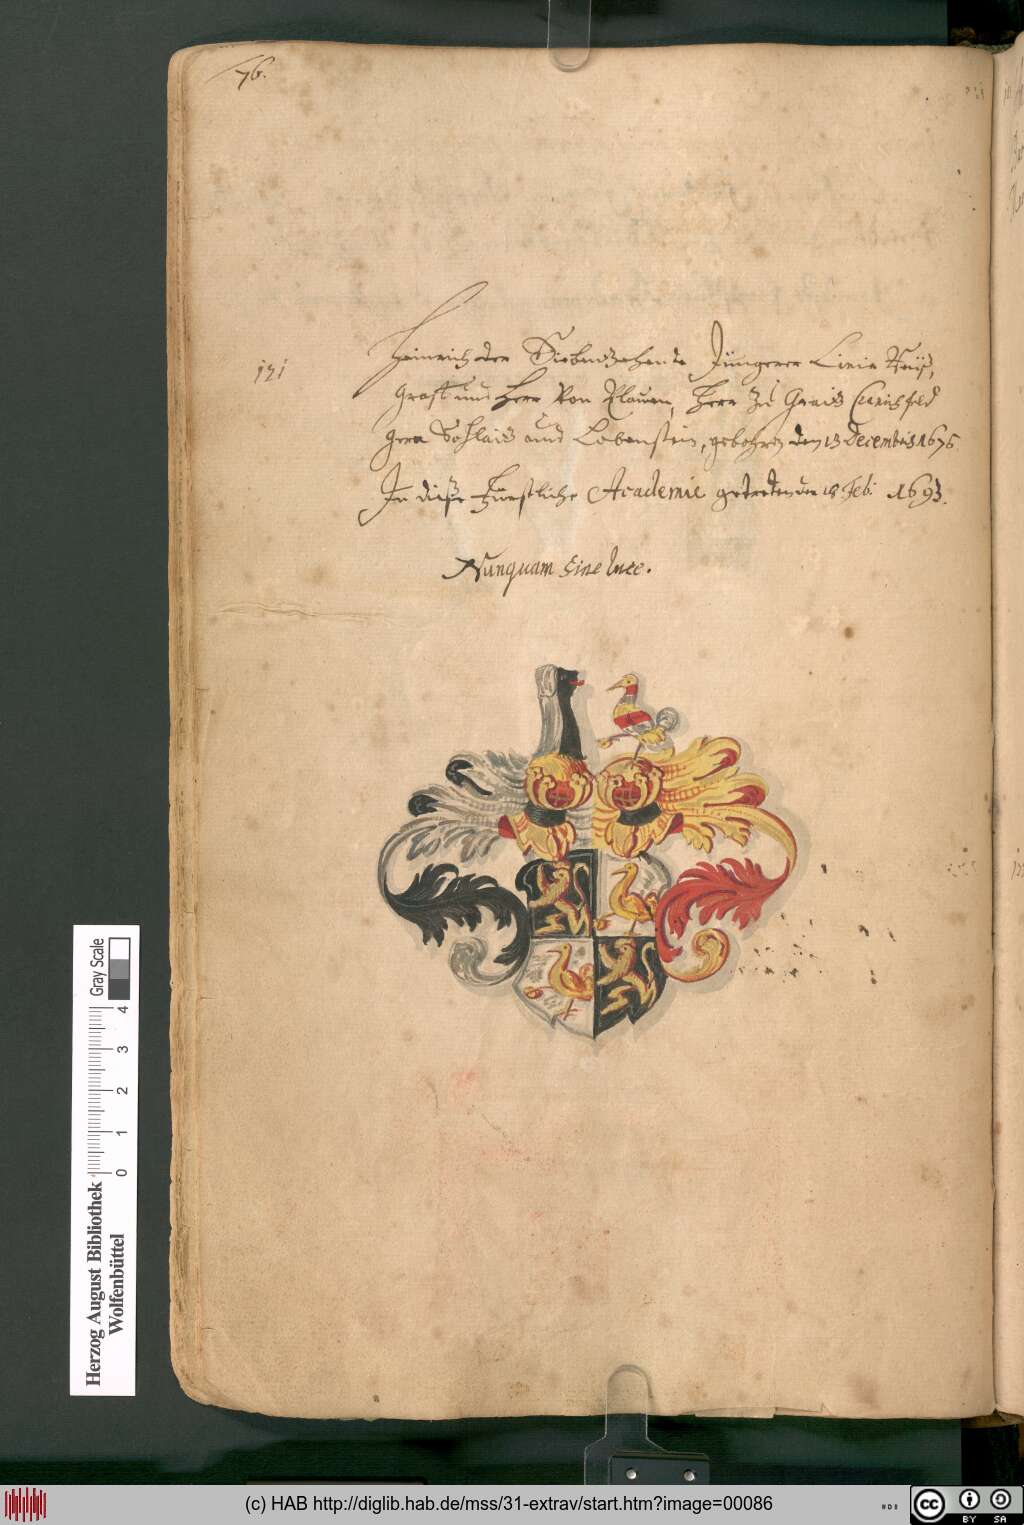 76.
121
Heinrich der Siebenzehende Jüngerer Linie Reüß,
Graff und Herr von Plauen, Herr zu Graiz Cranichfeld
Gera Schlaiz und Lobenstein, gebohren den 13 Decembris 1676.
In dieße Fürstliche Academie getreten den 18 Feb: 1693.
Nunquam sine luce.
Herzog August Bibliothek
Wolfenbüttel
0 1 2 3 4
Gray Scale
(c) HAB http://diglib.hab.de/mss/31-extrav/start.htm?image=00086
BY SA